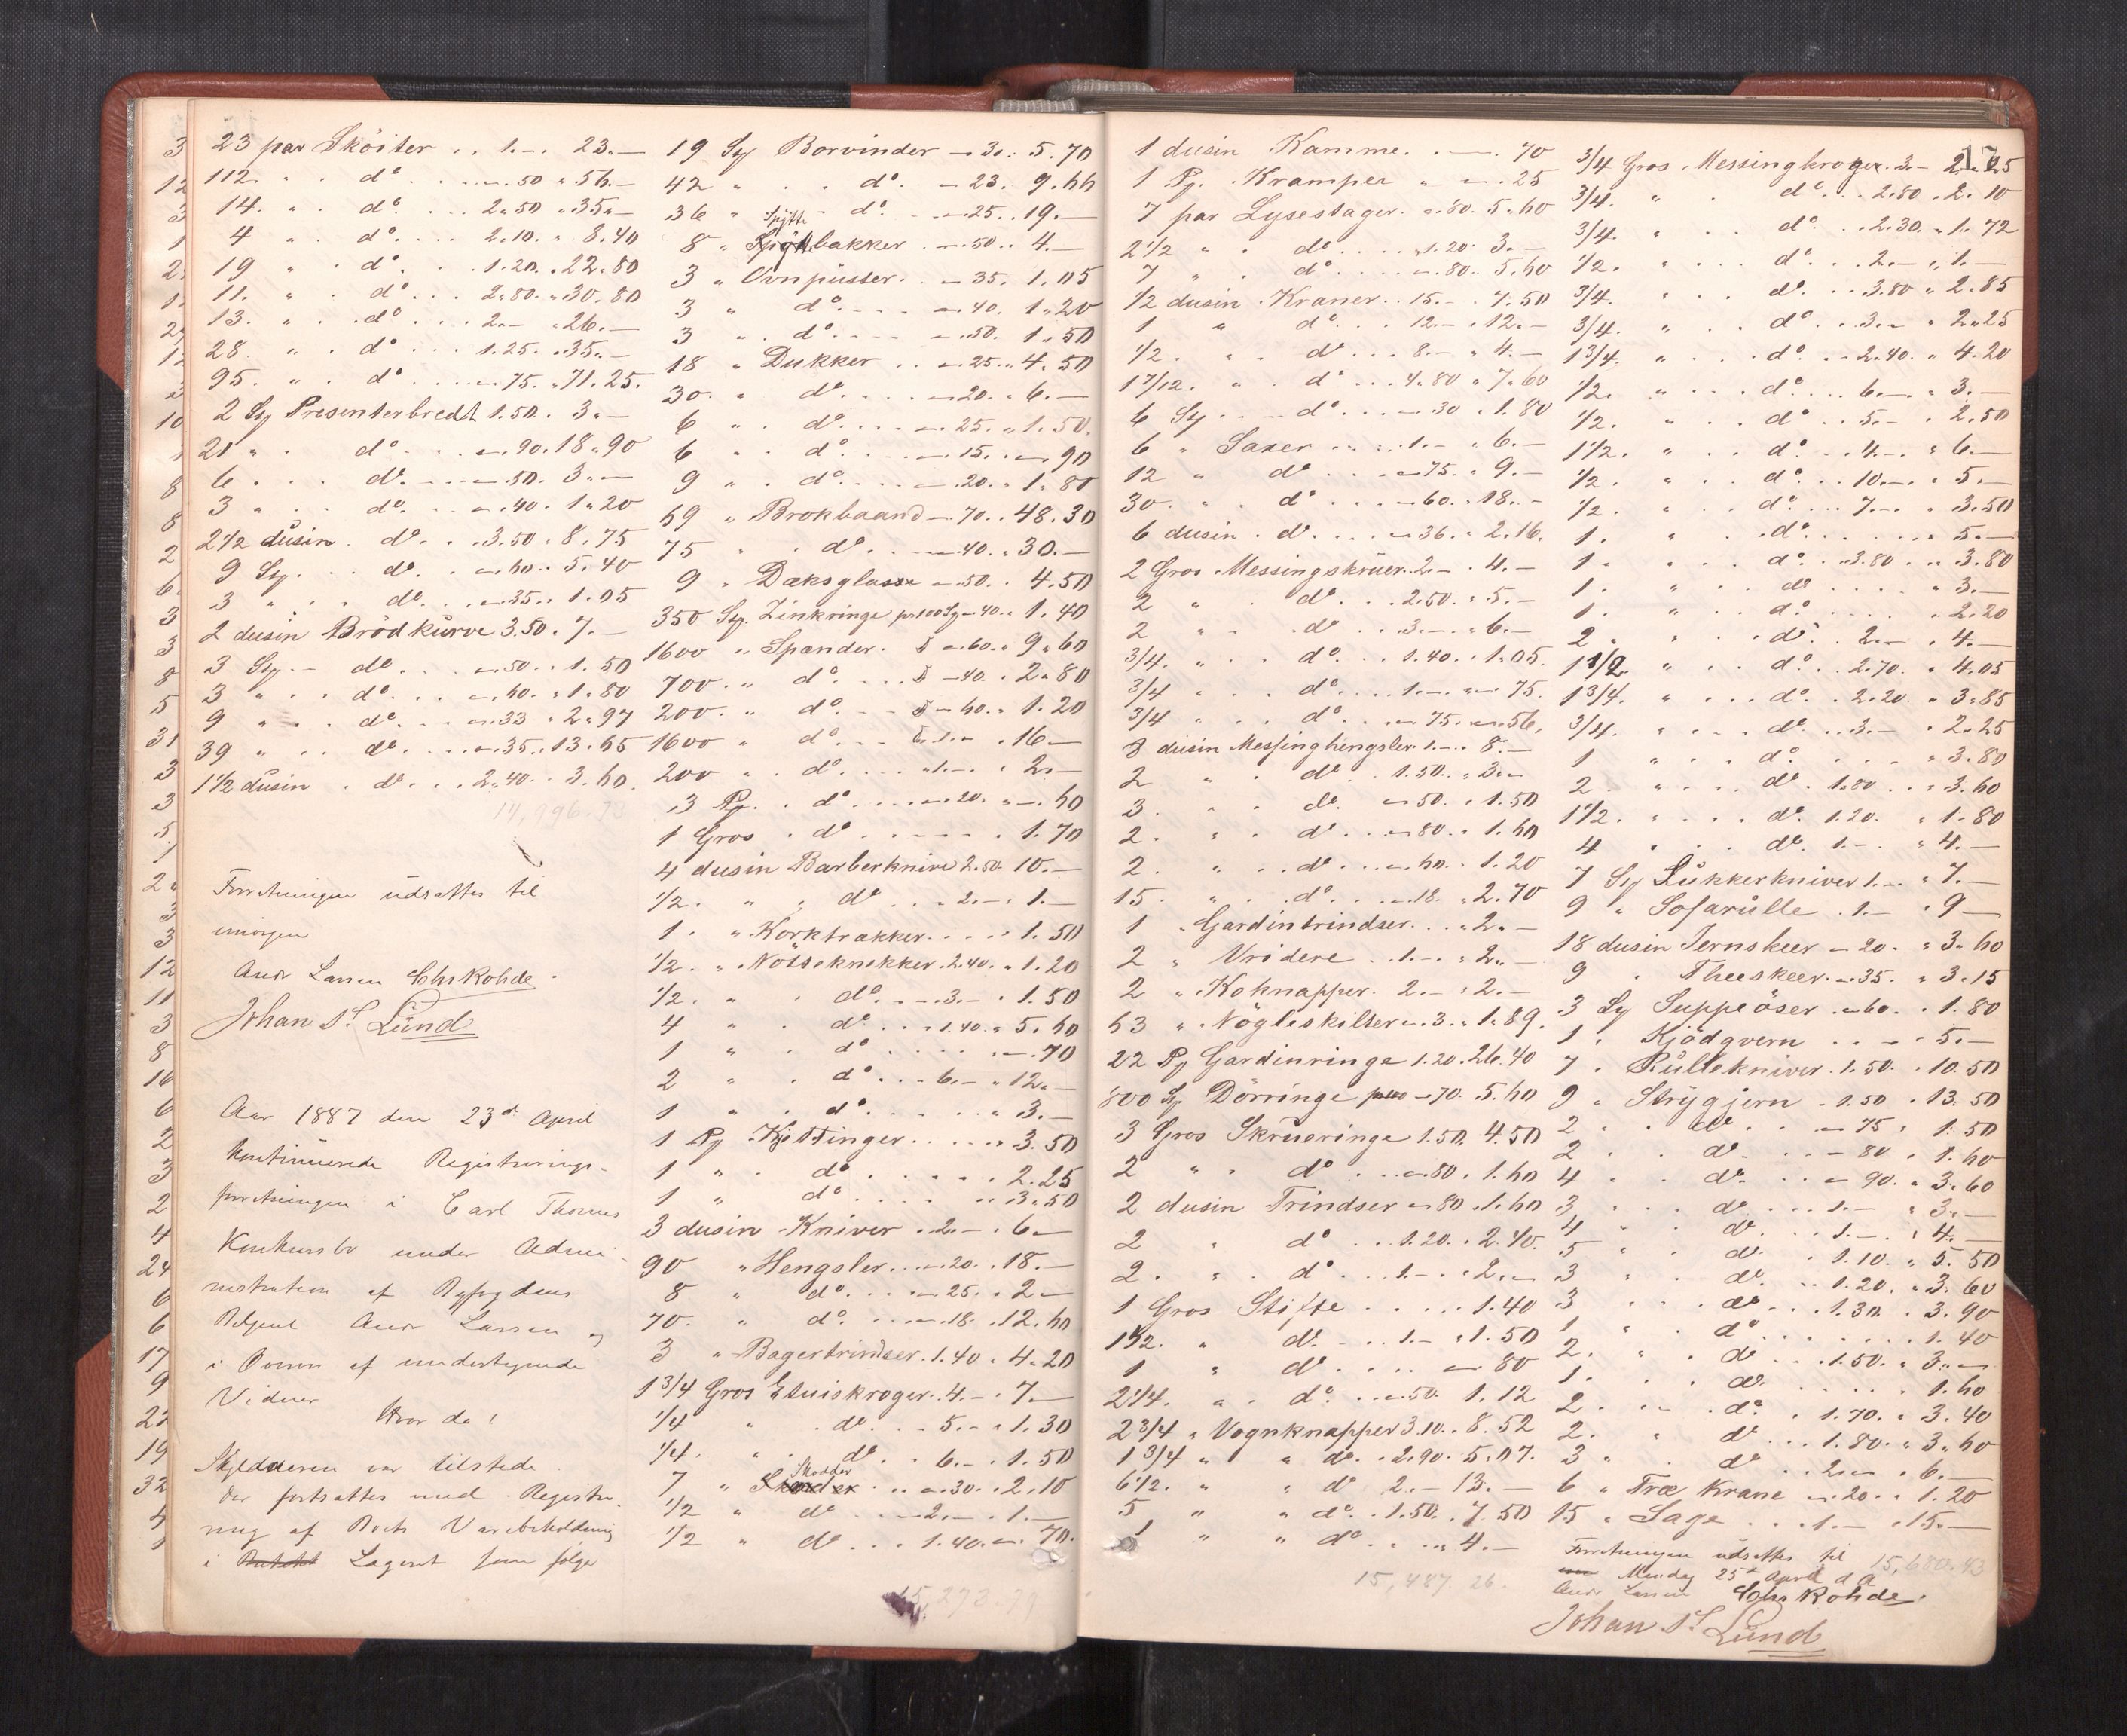 23 par Sköiter . . 1.-. 23.—
112. " . do . . . -.50 " 56.—
14. " . do . . . 2.50 " 35.—
4 " . do . . . 2.10. " 8.40
19 " . do . . . 1.20. " 22.80
11. " . do . . . 2.80. " 30.80
13. " . do . . . 2.- " 26.—
28 " . do . . . 1.25. " 35.—
95. " . do . . . -.75. " 71.25.
2 Sty Presenterbredt 1.50. 3.—
21 " . do . . -.90. 18.90
6 . . . do . . -.50. 3.—
3 " . . do . . -.40. 1.20
2 1/2 dusin . do . . 3.50 . 8.75
9 Sty. . . do . . -.60 . 5.40
3 " . . do . . -.35 . 1.05
2 dusin Brödkurve 3.50 . 7.—
3 Sty. - do . . -.50 . . 1.50
3 " . . do . . -.60. " 1.80
9 " . . do . . -.33 " 2.97
39 " . . do . . -.35 . 13.65
1 1/2 dusin . do . . . 2.40 . . 3.60.
14,996.73
Forretningen udsattes til
imorgen
Andr Larsen Chs Rohde.
Johan St Lund
Aar 1887 den 23d April
kontinuerede Registrerings-
forretningen i Carl Thomes
Konkursbo under Admi-
nistration af Byfogdens
Betjent Andr Larsen og
i Overvær af undertegnede
Vidner Hvor da:
Skyldneren var tilstede
Der fortsattes med Registre-
ring af Boets Varebeholdning
i Lageret som følger
19 Sty Borvinder - 30. 5.70
42 " . . do. - 23. 9.66
36 " - do. . -.25. . 19.—
8 " Spyttbakker . -.50. . 4.—
Spytte
3 " Ovnpusser. . - 35. 1.05
3 " do . . . . -.40. 1.20
3 " . do . . . -.50. 1.50
18 " Dukker . . -.25. . 4.50
30. . do . . . -.20. . 6.—
6 " . do . . . -.25. " 1.50.
6 " . do . . . -.15. . -.90
9 " . do . . . -.20. . 1.80
69 " Brokbaand -.70. . 48.30
75 " . do . . -.40. " 30.—
9 " Dæksglass -.50. . 4.50
350 Sty. Zinkringe pr 100 Sty -.40. . 1.40
1600 " Spander. -.60. " 9.60
700. " do . . - 40. . 2.80
200. " do . . - 60. . 1.20
1600 " do . . 1.- . 16—
200 " . do . . "1.- . 2.—
3 Pg. . do . . . -.20. " -.60
1 Gros . do . . . . . 1.70
4 dusin Barberknive 2.50 10.—
1/2. " " do . . . 2.- . 1.—
1. " Korktrækker . . . . 1.50
1/2. " Nötteknekker. 2.40. " 1.20
1/2. " . do . - . 3.- . 1.50
4 " . do . . . 1.40. " 5.60
1 " . do . . . . . -.70
2 " . do . . . 6.- " 12.—
1 " . do . . . . . . 3.—
1 Pg Kjettinger . . . . . 3.50
1 " . do . . . . . . 2.25
1 " do . . . . . . 3.50
3 dusin Kniver . 2.- . 6.—
90 " Hengsler . . -.20. . 18.—
8 " do . . . -.25. . 2—
70. " do . . . -.18. . 12.60
3 " Bagertrindser. 1.40 . 4.20
1 3/4 Gros Etuiskroger. 4.- . 7—
1/4 " . do . . 5.- . 1.30
1/4. " . do . . 6.- . 1.50
Skodder
7 " . . -.30. . 2.10
1/2 " do . . . 2.- . 1.—
1/2 " do . . . 1.40. -. 70.
15,272.79
1 dusin Kamme. . —. 70
1 Pg. Kramper " -.25
7 par Lysestager. -.80. 5.60
2 1/2 " . do . . . 1.20. 3.—
7 " " do . . . -.80. 5.60
1/2 dusin Kraner . . 15.- . 7.50
1 " do . . . 12.- . 12.—
1/2. . . do . . . 8.- " 4.—
1 7/12. " . do . . . 4.80 " 7.60
6 Sty . . do . . . -.30 . 1.80
6 " Saxer . . . . 1.- . 6.—
12 " do . . . -.75. . 9.—
30. " . do . . . -.60. . 18.—
6 dusin . do . . . -.36. . 2.16.
2 Gros Messingskruer. 2.- . 4.—
2 " . do . . . 2.50. . 5.—
2 " . do . . . 3.- . " 6.—
3/4. " . do . . . 1.40. . 1.05.
3/4 " . . do . . . 1.- . -. 75.
3/4 " . . do . . . -.75. -.56.
8 dusin Messinghengsler. 1.- . 8.—
2 " . do . . . 1.50. . 3.—
3. . . do . . -.50. . 1.50
2. " . do . . -.80. . 1.60
2. " . do . . . -.60. . 1.20
15. " . do . . . -.18. . 2.70
1 " Gardintrindser. . . . 2.—
2 " Vridere . . 1.- . 2.—
2 " Koknapper. 2.- : 2.—
63 " Nögleskilter -.3. . 1.89.
22 Pg Gardinringe 1.20. 26.40
800 Sty. Dörringe pr 100 -.70. 5.60
3 Gros Skrueringe 1.50. 4.50
2 " . do . . . -.80. 1.60
2 dusin Trindser -.80. 1.60
2 . do . . 1.20. . 2.40.
2. " . do . . . 1.- . 2.—
1 Gros Stifte . . . . . 1.40
1 1/2. " do . - . . 1.- . 1.50
1 " do . . . . -.80
2 1/4. " . do . . . -.50. 1.12
2 3/4 " Vognknapper 3.10. . 8.52
1 3/4 " " do . . 2.90. 5.07.
6 1/2. " " do 2.- 13.—
5 " " do . . 1.50. . 7.50
1 " " do . . . . . 4.—
15,487.26.
17
3/4 Gros Messingkroger. 3.- 2.25
3/4. " . do . . . 2.80 . 2.10
3/4. " . do . . 2.30. . 1.72
1/2. " . . do . . . 2.- . 1.—
3/4. " . do . . . 3.80 " 2.85
3/4. " . . do . . . 3.- " 2.25
1 3/4. " . . do . . . 2.40. " 4.20
1/2. " . . do . . . 6.- . 3.—
1/2. " . . do . . 5.- . 2.50
1 1/2. " . . do . . 4.- " 6.—
1/2. " . . do . . 10.- . 5.—
1/2. " . . do . . . 7.- . 3.50
1. " . do . . . . . . 5.—
1. . . do . . . 3.80 . . 3.80
1. " . do . . . . " 3.—
1. " . do . . . . . 2.20
2. " . do . . 2.- . 4.—
1 1/2. " . . do . . 2.70. " 4.05
1 3/4. " . . do . . 2.20. " 3.85
3/4. . . do . . . 3.- . 2.25
1 " . do . . . . . " 3.80
2. " . . do . 1.80 . . 3.60
1 1/2. " . . do . 1.20. " 1.80
4 " . . do . 1.- . " 4.—
7 Sty Sukkerkniver 1.- " 7.—
9 " Sofarulle . 1.- . 9—
18 dusin Jernskeer -.20. . 3.60
9 . Theeskeer. -.35. " 3.15
3 Sty Suppeöser . -.60. . 1.80
1. Kjödqvern . . - . 5.—
7 . Rullekniver. 1.50. . 10.50
9 . Strygjern . 1.50 . 13.50
2 . . do . . - 75 . 1.50
2 . . do . . . - 80 . 1.60
4 . . do . . . - 90. . 3.60
3 . . do . . . 1.- . 3.—
4 " . do . . . 1.- . 4.—
5 " . do . . 1.10. . 5.50
3 . . do . . . 1.20. . 3.60
3 . . do . . . 1.30. . 3.90
1 " . do . . . . . . . 1.40
2. " . do . . . 1.50. . 3.—
1. . . do . . . . . . 1.60
2. . . do . . 1.70. . 3.40
2. " . do . . . 1.80. . 3.60
3 " . do . . . 2.- . 6.—
6 " Træ Krane -.20. . 1.20
15 " Sage . . . 1.- . 15.—
Forretningen udsattes til 15,680.43
Mandag 25de April d A
Andr Larsen Chs Rohde.
Johan St Lund